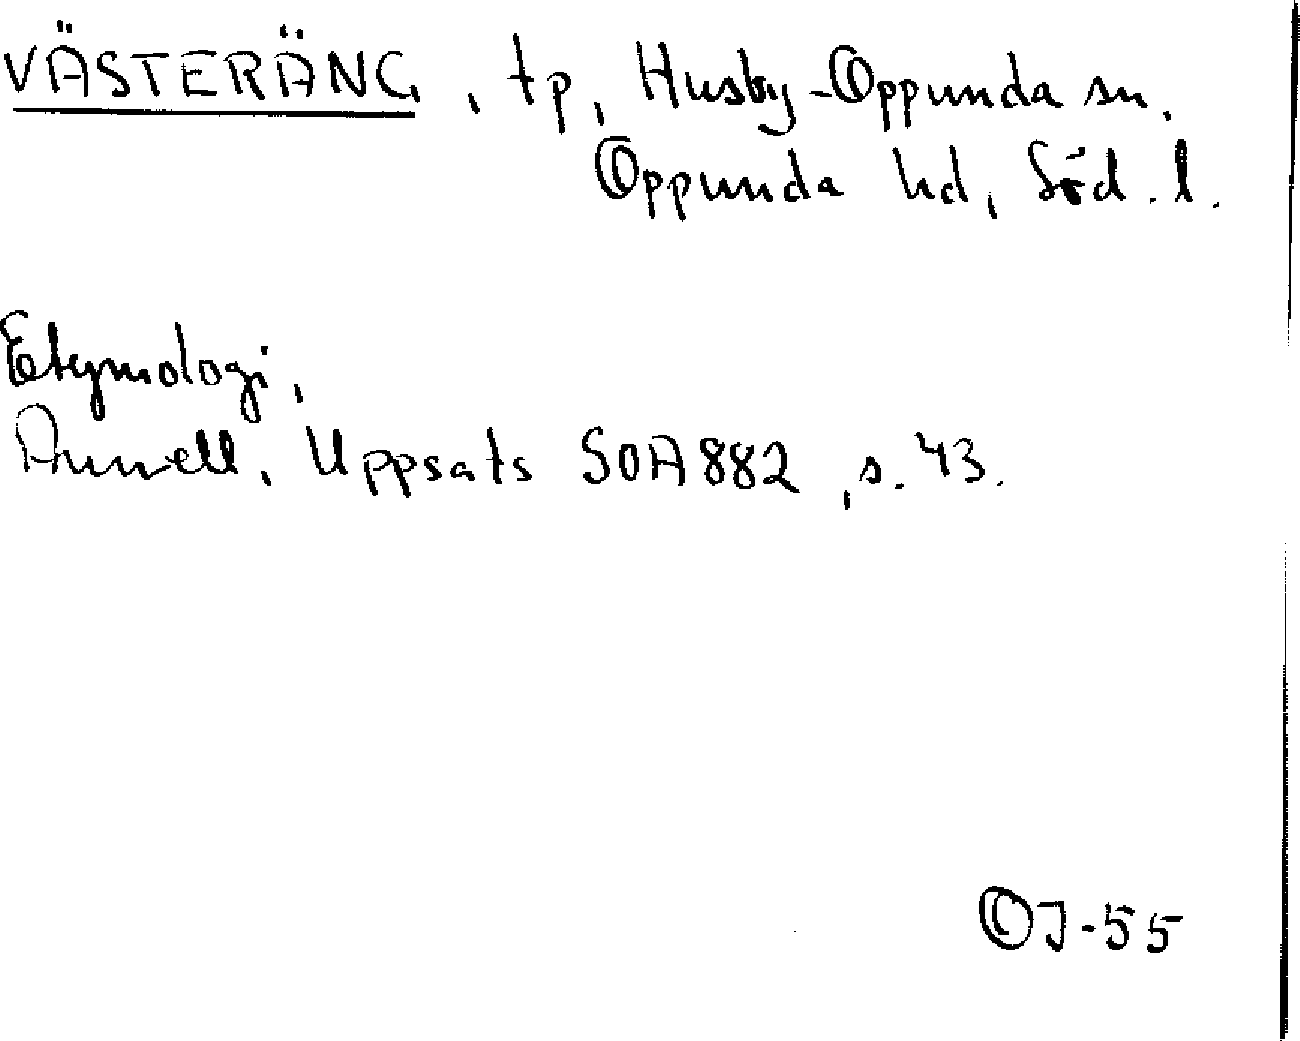 VÄSTERÄNG, tp, Husby-Oppunda sn.
Oppunda hd, Söd. l.
Etymologi,
Uppsats SOA 882, s. 43.
OJ-55